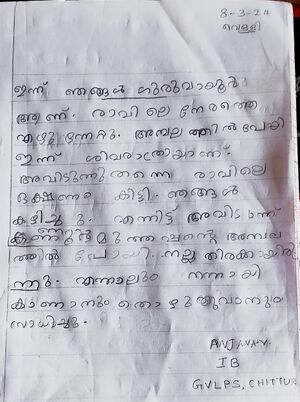 8-3-24
വെള്ളി
ഇന്ന് ഞങ്ങൾ ഗുരുവായൂർ
ആണ്. രാവിലെ നേരത്തെ
എഴുന്നേറ്റു. അമ്പലത്തിൽ പോയി
ഇന്ന് ശിവരാത്രിയാണ്.
അവിടുന്ന് തന്നെ രാവിലെ
ഭക്ഷണം കിട്ടി. ഞങ്ങൾ
കഴിച്ചു. എന്നിട്ട് അവിടുന്ന്
അമ്പല
ത്തിൽ പോയി. നല്ല തിരക്കായിരു
ന്നു. എന്നാലും നന്നായി
കാണാനും തൊഴുതുവാനും
സാധിച്ചു.
ANJANA.V.
IB
GVLPS, CHITTUR